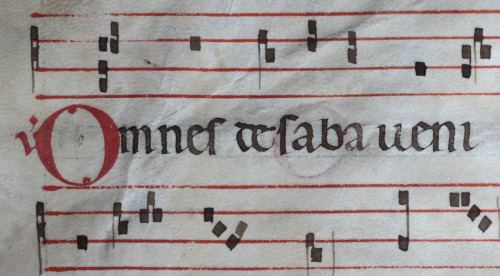 ℣ Omnes de saba ueni